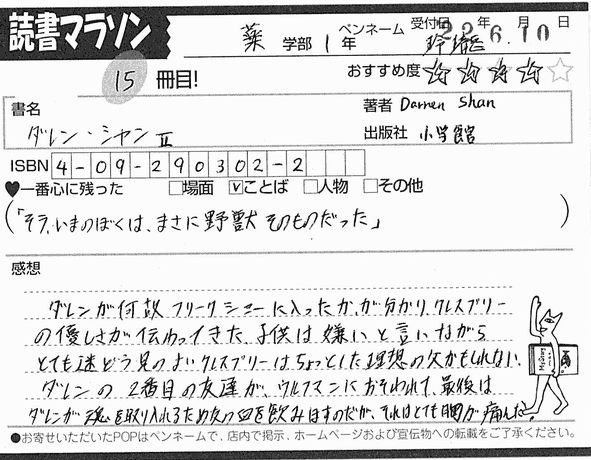 読書マラソン
薬 学部 1 年 ペンネーム
受付日 22年 6月 10日
15 冊目!
おすすめ度 ★★★★☆
書名 ダレン・シャンⅡ
著者 Darren Shan
出版社 小学館
ISBN 4-09-290302-2
♥一番心に残った □場面 ☑ことば □人物 □その他
(「そう、いまのぼくは、まさに野獣そのものだった」)
感想
ダレンが何故フリークショーに入ったか、が分かり、クレスプリー
の優しさが伝わってきた。子供は嫌いと言いながら
とても迷どう見のよいクレスプリーは、ちょっとした理想の父かもしれない。
ダレンの2番目の友達が、ウルフマンにおそわれて、最後は
ダレンが魂を取り入れるため女の血を飲みほすのだが、それはとても胸が痛んだ。
●お寄せいただいたPOPはペンネームで、店内で掲示、ホームページおよび宣伝物への転載をご了承ください。